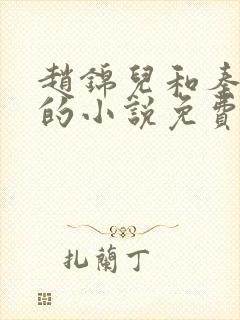 趙錦兒和秦
的小說免費
扎蘭丁